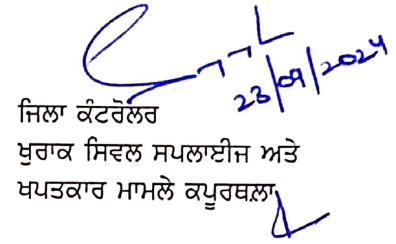 23/09/2024
ਜਿਲਾ ਕੰਟਰੋਲਰ
ਖੁਰਾਕ ਸਿਵਲ ਸਪਲਾਈਜ ਅਤੇ
ਖਪਤਕਾਰ ਮਾਮਲੇ ਕਪੂਰਥਲਾ